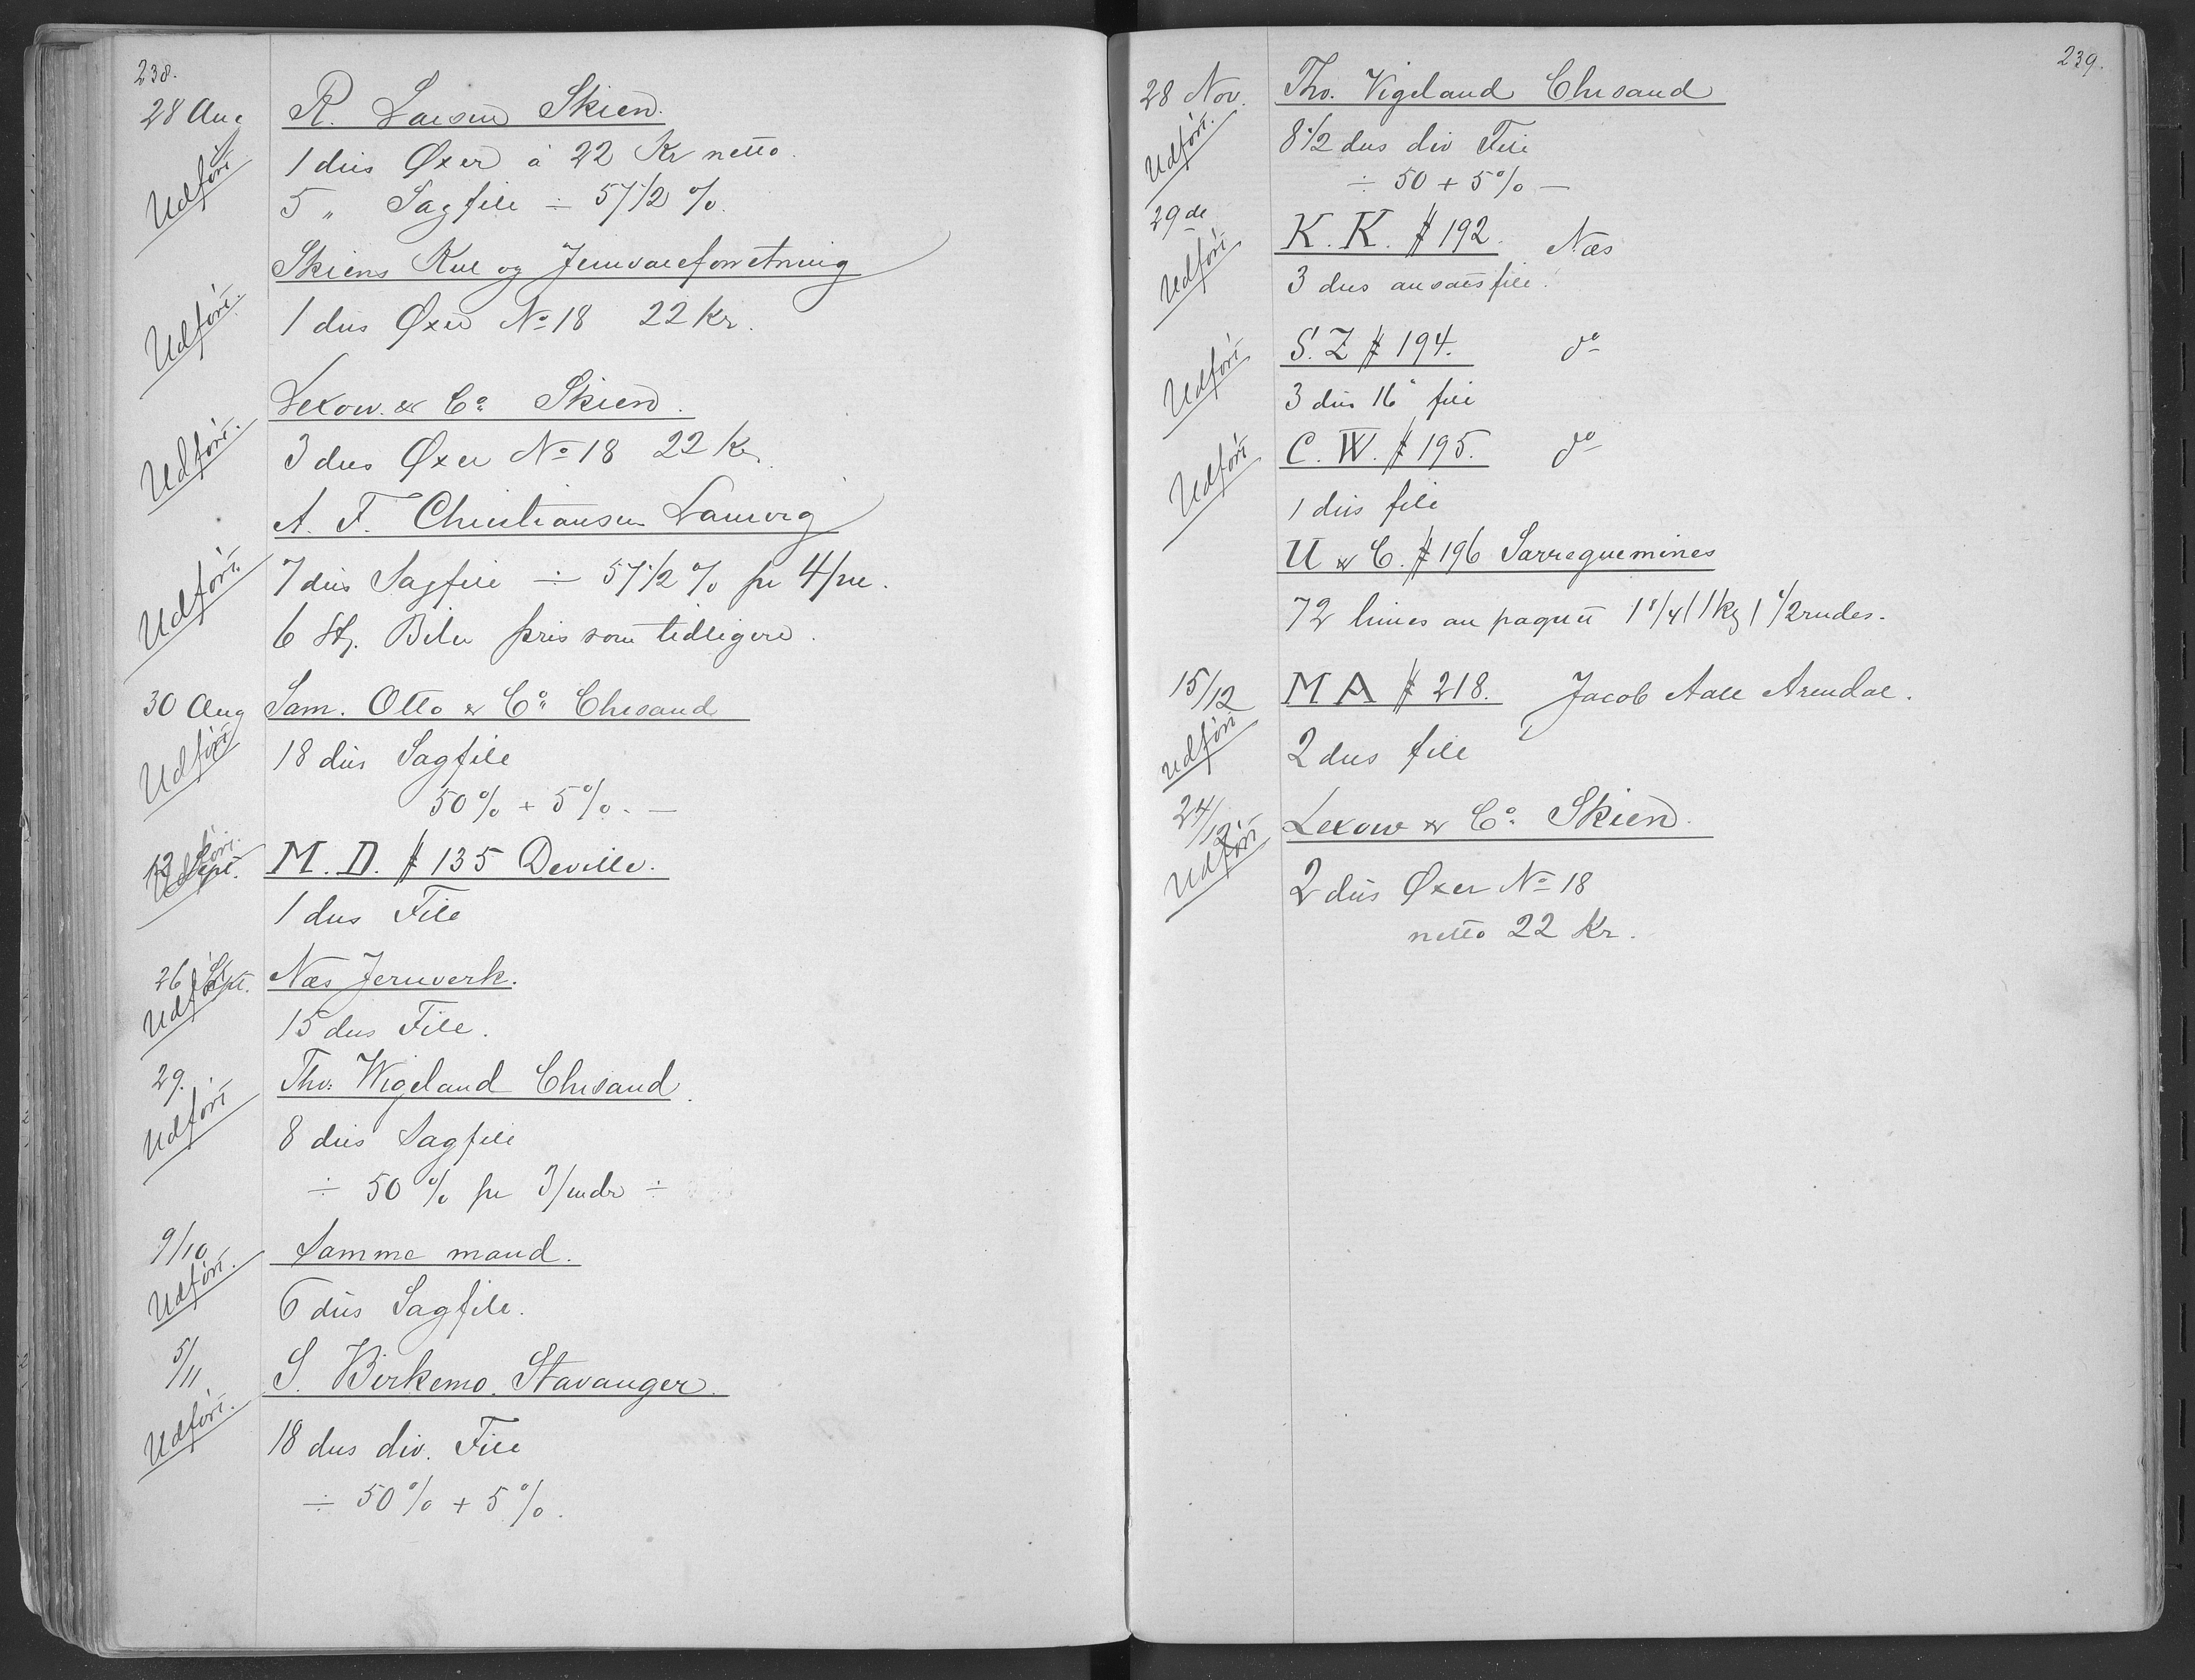 238.
28 Aug
R. Larsen Skien.
Udført
1 dus Øxer à 22 Kr netto.
5 " Sagfile ÷ 57 1/2 %.
Skiens Kul og Jernvareforretning
Udført.
1 dus Øxer No 18 22 Kr.
Lexow & Co Skien.
Udført.
3 dus Øxer No 18 22 Kr.
A. F. Christiansen Laurvig
Udført.
7 dus Sagfile ÷ 57 1/2 % pr 4/m.
6 St. Biler pris som tidligere.
30 Aug
Sam. Otto & Co Chrsand
Udført
18 dus Sagfile
50% + 5%. —
12 Sept.
Udført.
M. D. # 135 Deville.
1 dus File
26 Sept.
Udført
Næs Jernverk.
15 dus File.
29.
Tho: Wigeland Chrsand.
Udført
8 dus Sagfile
÷ 50 % pr 3/mdr ÷
9/10
Samme mand.
Udført.
6 dus Sagfile.
5/11
S. Birkemo. Stavanger.
Udført.
18 dus div. File
÷ 50% + 5%.
239.
28 Nov.
Tho. Vigeland Chrsand
Udført.
8 1/2 dus div File
÷ 50 + 5% —
29 de
K. K. # 192. Næs
Udført
3 dus ansatsfile.
S. Z # 194. do
Udført
3 dus 16" file
C. W. # 195. do
Udført
1 dus file
U & C. # 196 Sarreguemines
72 limes au paquet 1 1/4 / 1 kg / 1 1/2 rudes.
15/12
M A # 218. Jacob Aall Arendal.
Udført
2 dus file
24/12
Lexow & Co Skien.
Udført
2 dus Øxer No 18
netto 22 Kr.